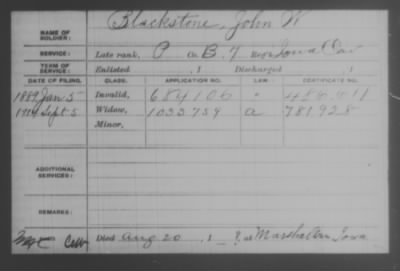 NAME OF SOLDIER: Blackstone, John W
SERVICE: Late rank, P Co. B, 7 Reg't Iowa Cav
TERM OF SERVICE: Enlisted , 1 Discharged , 1
DATE OF FILING. CLASS. APPLICATION NO. LAW. CERTIFICATE NO.
1889 Jan 5 Invalid, 684106 "
1914 Sept 5 Widow, 1033759 a 781928
Minor,
ADDITIONAL SERVICES:
REMARKS:
Died Aug 20 , 1 , at Marshalltown Iowa